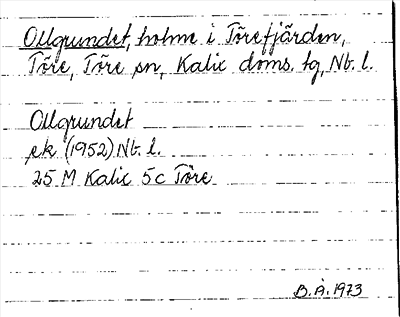 Ollgrundet, holme i Törefjärden,
Töre, Töre sn, Kalix doms. tg, Nb. l.
Ollgrundet
ek (1952) Nb. l.
25 M Kalix 5c Töre
B.Å. 1973